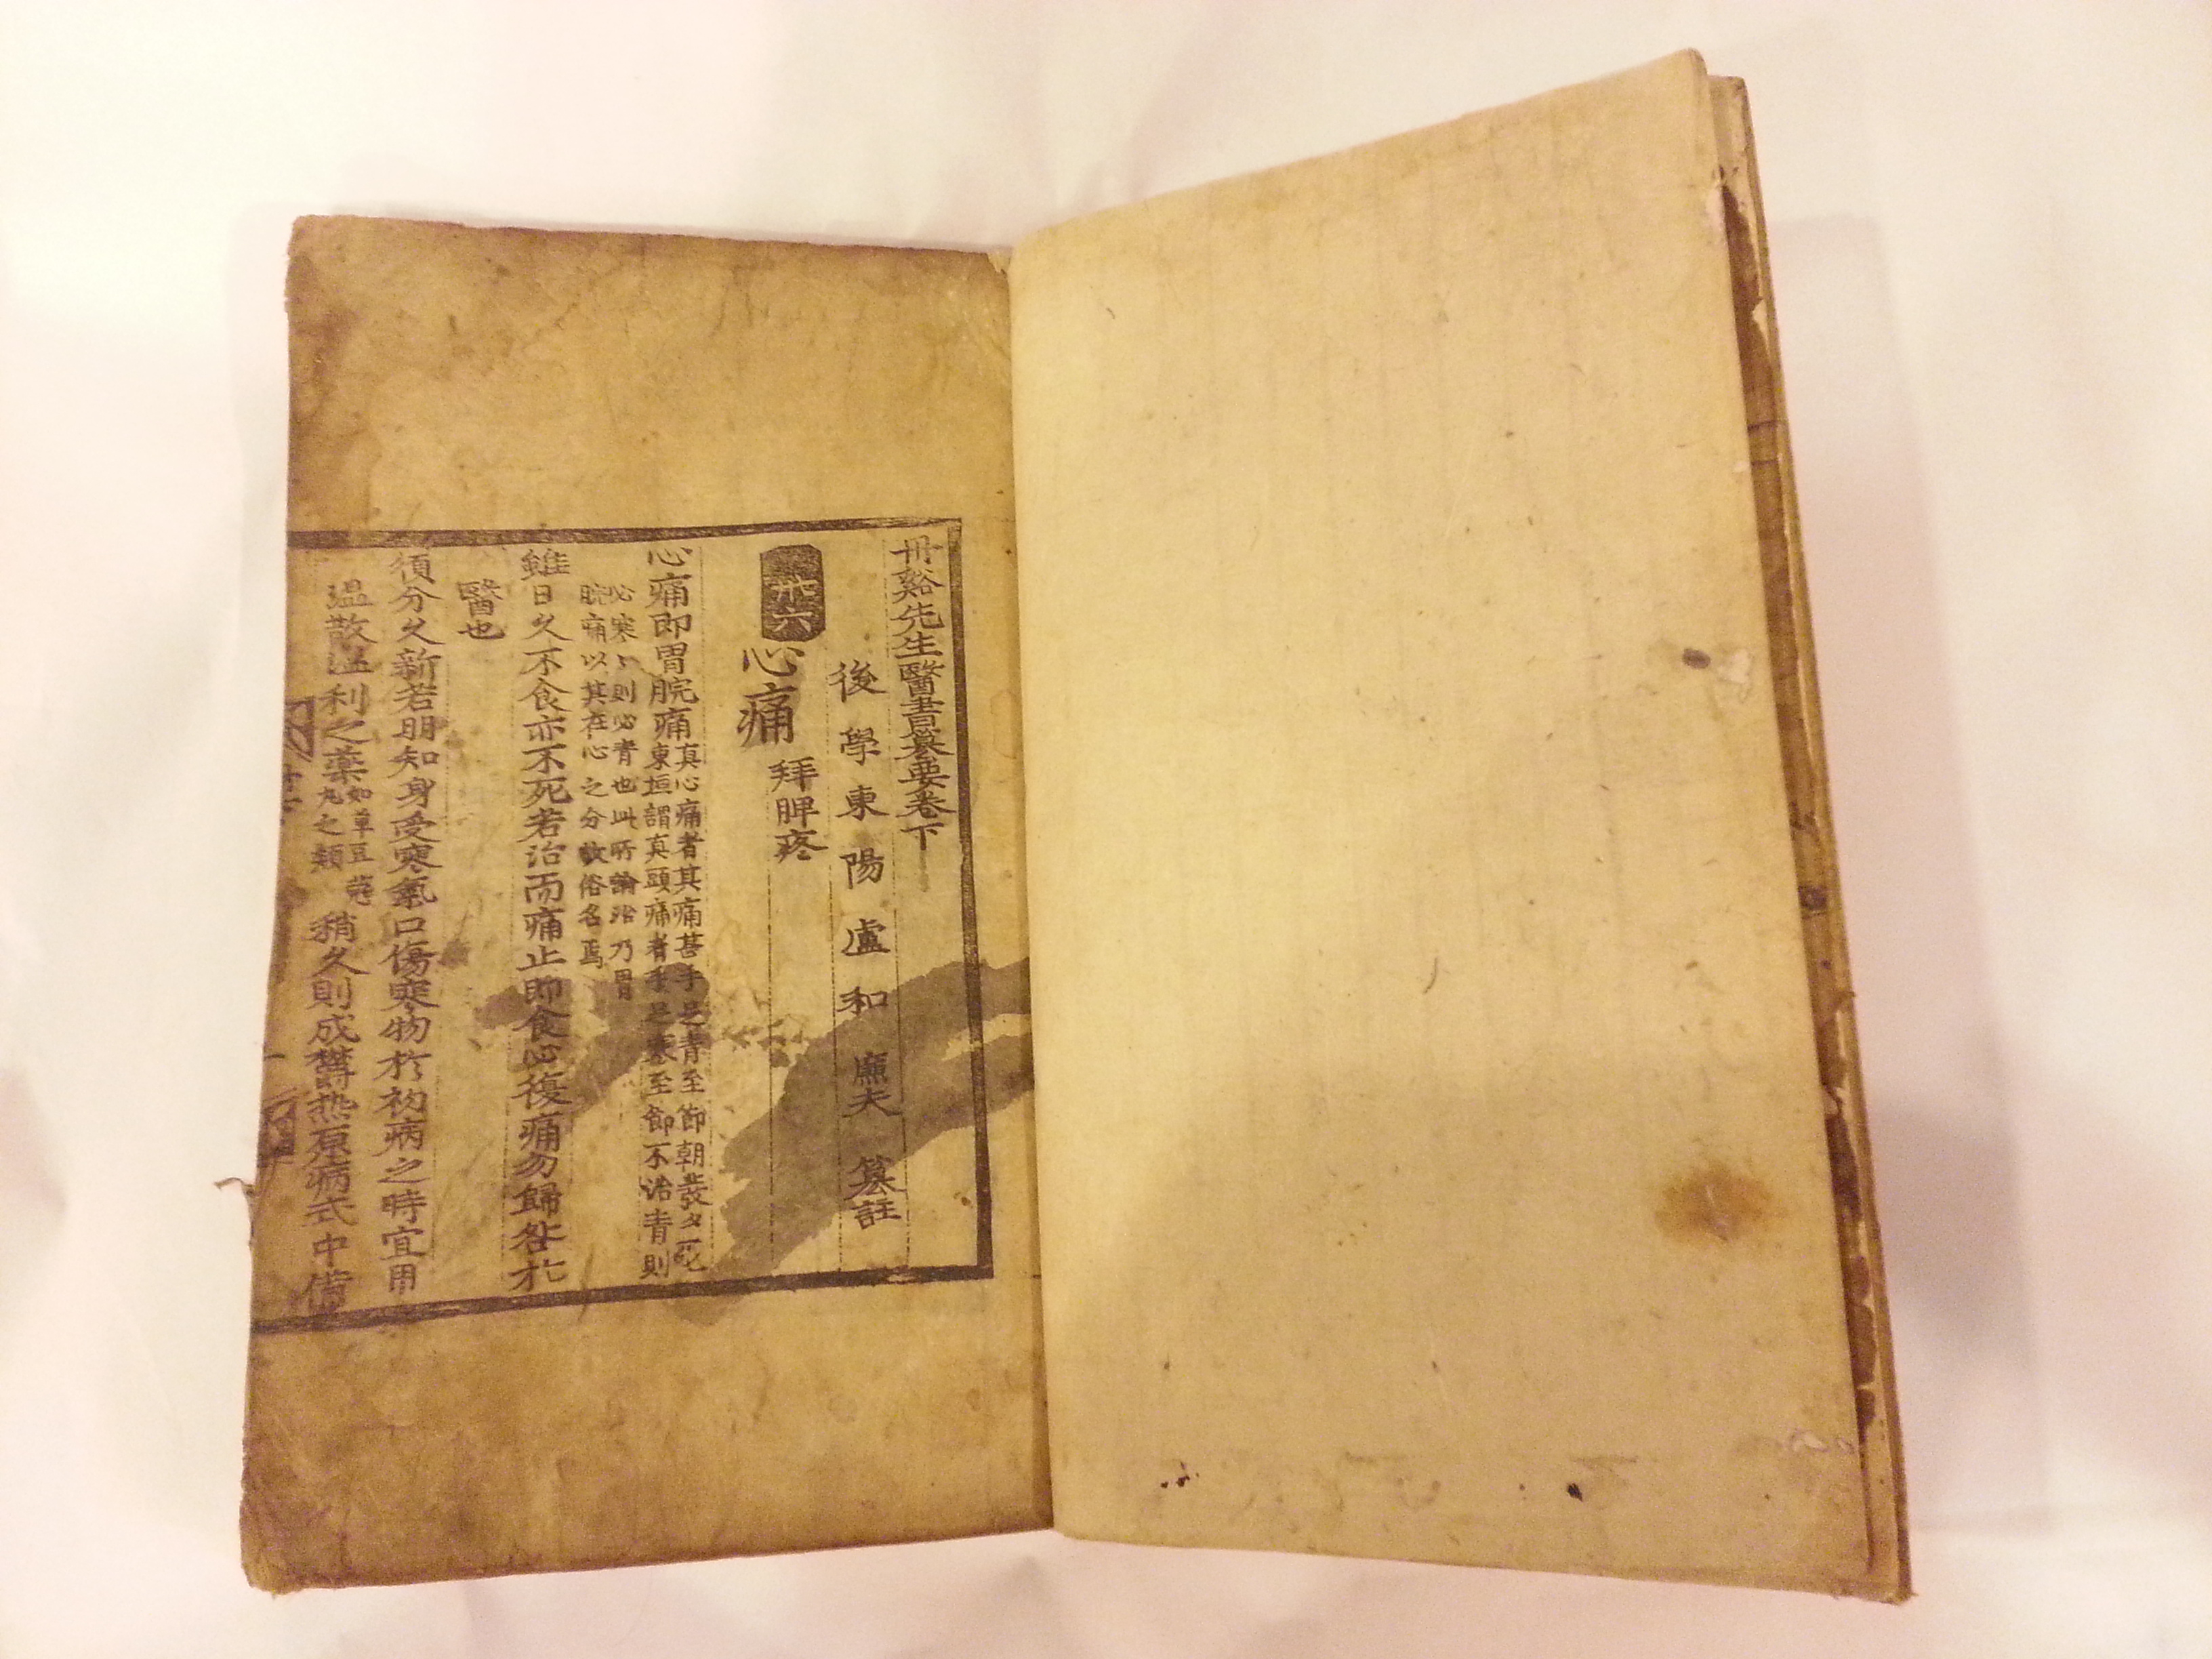 丹谿先生醫書纂要卷下
後學東陽盧和廉夫纂註
卅六
心痛 拜脾疼
心痛即胃脘痛
真心痛者其痛甚手足青至節朝發夕死
東垣謂真頭痛者手足寒至節不治青則
必寒〻則必青也此所論治乃胃
脘痛以其在心之分故俗名焉
雖日久不食亦不死若治而痛止即食必復痛勿歸咎於
醫也
須分久新若明知身受寒氣口傷寒物於初病之時宜用
溫散溫利之藥
如草豆蔻
丸之類
稍久則成欝热原病式中備